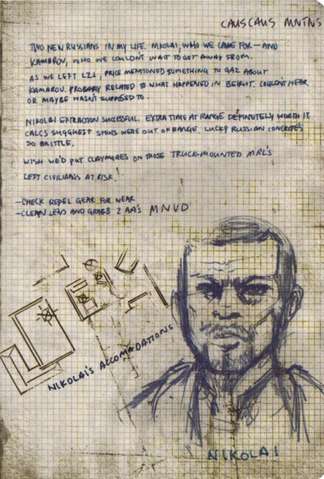 CAUSCAUS MNTNS
TWO NEW RUSSIANS IN MY LIFE. NIKOLAI, WHO WE CAME FOR — AND
KAMAROV, WHO WE COULDN'T WAIT TO GET AWAY FROM.
AS WE LEFT LZ1, PRICE MENTIONED SOMETHING TO GAZ ABOUT
KAMAROV. PROBABLY RELATED TO WHAT HAPPENED IN BEIRUT. COULDN'T HEAR
OR MAYBE WASN'T SUPPOSED TO.
NIKOLAI EXTRACTION SUCCESSFUL. EXTRA TIME AT RANGE DEFINITELY WORTH IT
CALCS SUGGGEST SHOTS WERE OUT OF RANGE. LUCKY RUSSIAN CONCRETE'S
SO BRITTLE.
WISH WE'D PUT CLAYMORES ON THOSE TRUCK-MOUNTED MRL'S
LEFT CIVILIANS AT RISK!
-CHECK REPEL GEAR FOR WEAR
-CLEAN LENS AND GRABB 2 AA'S MNVD
NIKOLAI'S ACCOMADATIONS
NIKOLAI